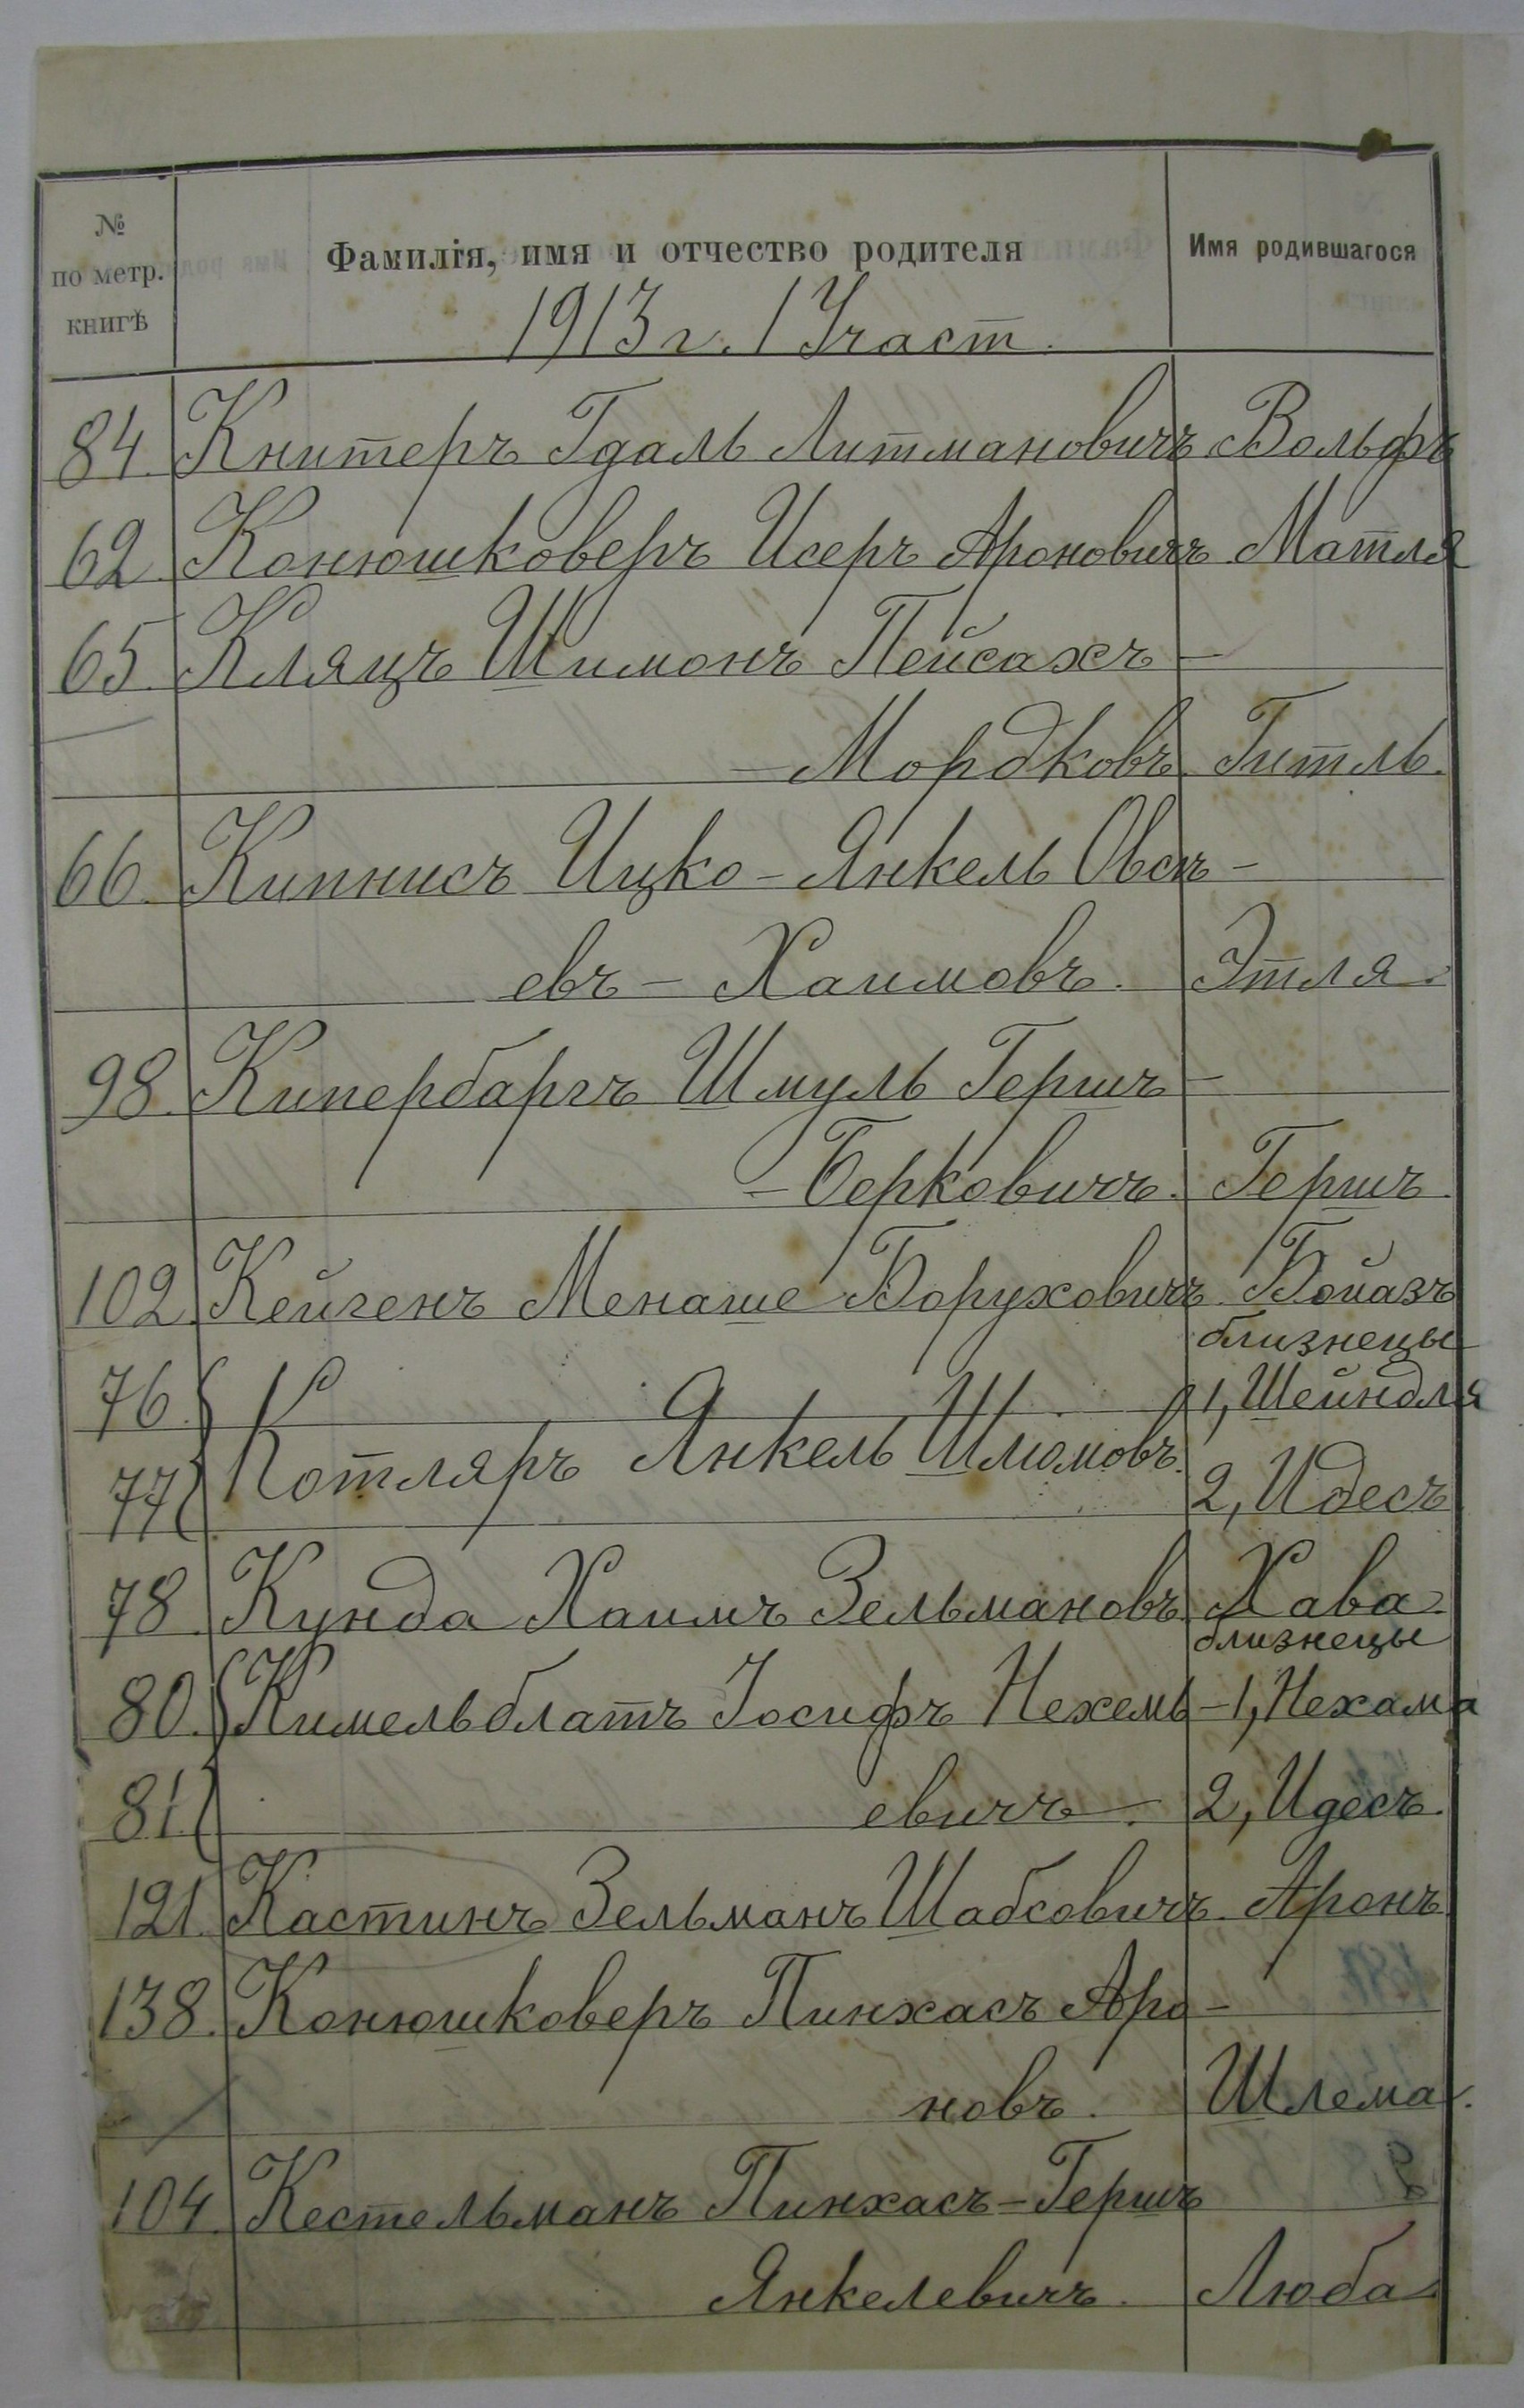 № по метр. книгѣ Фамилія, имя и отчество родителя Имя родившагося
1913 г. 1 Участ.
84. Книтеръ Гдаль Литмановичъ Вольфъ
62 Конюшковеръ Исеръ Ароновичъ Матля
65. Кляцъ Шимонъ Пейсахъ-
-Мордковъ. Гитль.
66. Кипнисъ Ицко-Янкель Овсѣ-
евъ-Хаимовъ. Этля.
98. Кипербаргъ Шмуль Гершъ-
-Берковичъ. Гершъ.
102. Кейгенъ Менаше Боруховичъ. Бойазъ
близнецы
76. 1, Шейндля
Котляръ Янкель Шломовъ.
77 2, Идесъ
78. Кунда Хаимъ Зельмановъ. Хава.
близнецы
80. Кимельблатъ Іосифъ Нехемь- 1, Нехама
81. евичъ. 2, Идесъ.
121. Кастинъ Зельманъ Шабсовичъ. Аронъ.
138. Конюшковеръ Пинхасъ Аро-
новъ. Шлема.
104. Кестельманъ Пинхасъ-Гершъ
Янкелевичъ. Люба